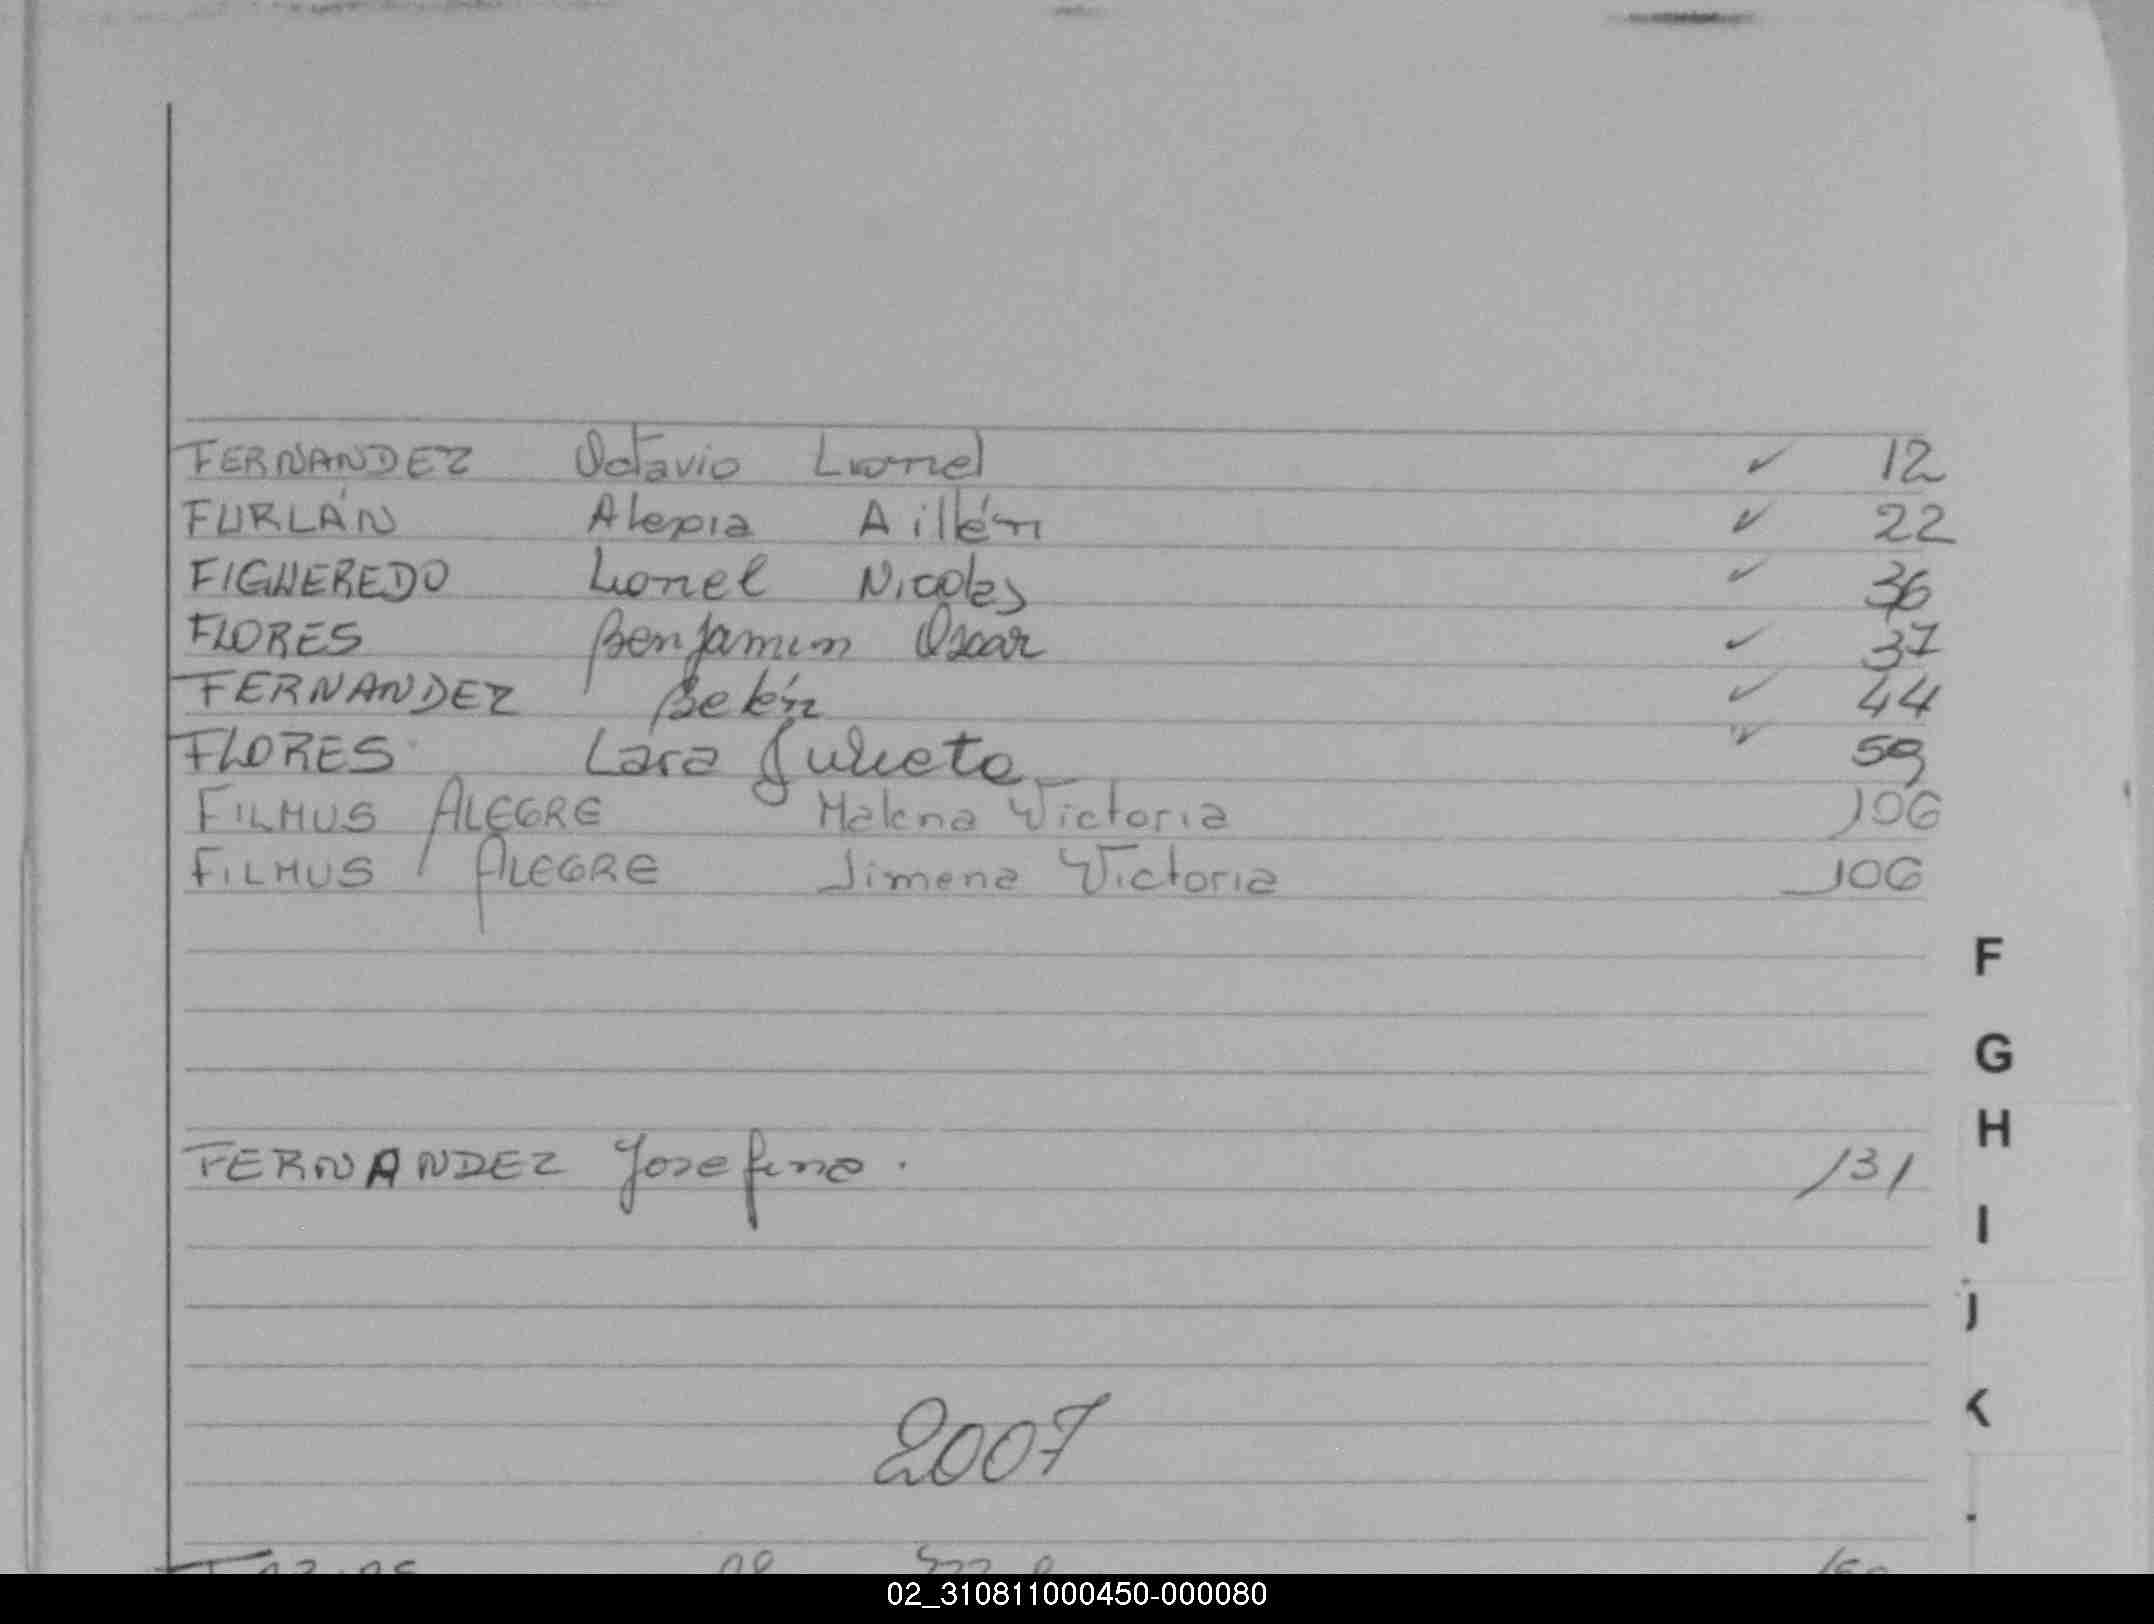 FERNANDEZ Octavio Lionel ✓ 12
FURLÁN Alexia Aillén ✓ 22
FIGUEREDO Lionel Nicolás ✓ 36
FLORES Benjamin Oscar ✓ 37
FERNANDEZ Belén ✓ 44
FLORES Lara Julieta ✓ 59
FILMUS ALEGRE Malena Victoria 106
FILMUS ALEGRE Jimena Victoria 106
F
G
H
FERNANDEZ Josefina. 131
I
J
K
2007
02_310811000450-000080